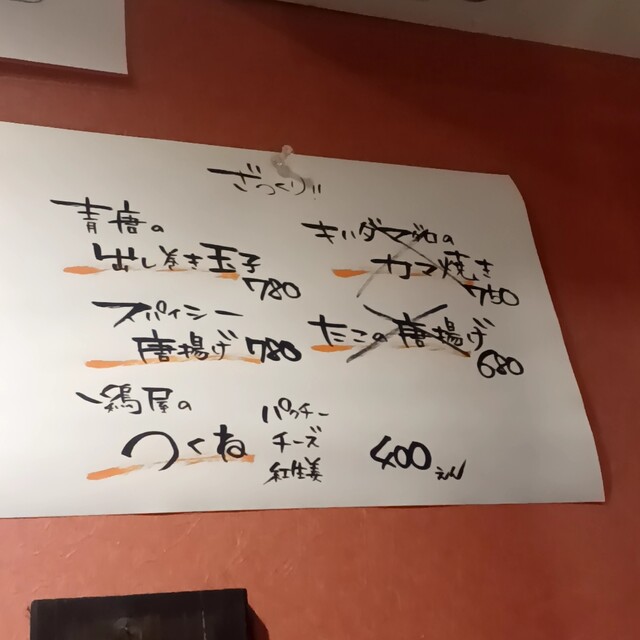 ざっくり!!
青唐の
出し巻き玉子
780
スパイシー
唐揚げ 780
鶏屋の
つくね
パクチー
チーズ
紅生姜
400えん
キハダマグロの
カマ焼き
750
たこの唐揚げ
680